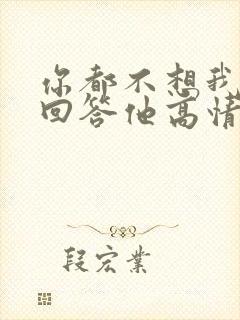 你都不想我
回答他高情
段宏业